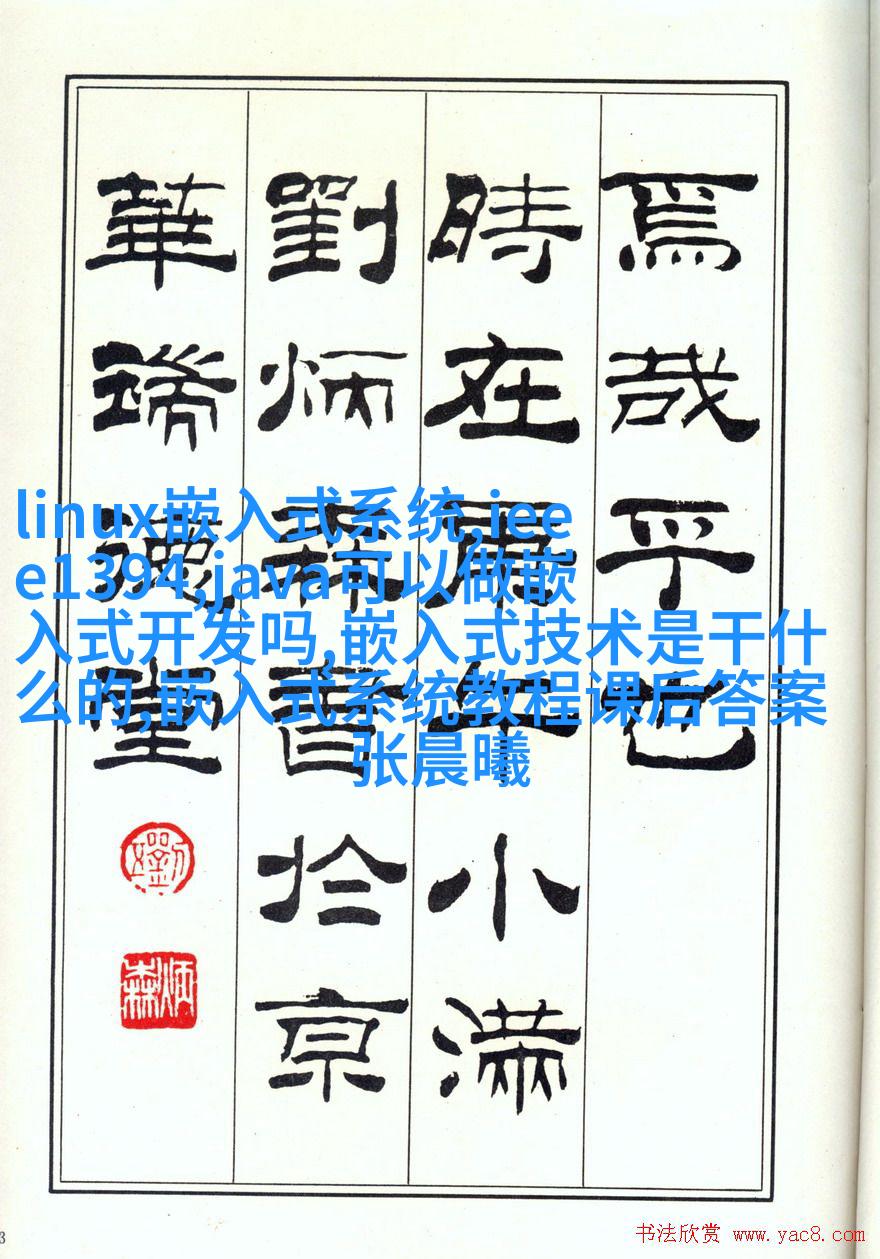 焉哉乎也
時在庚午小滿
劉炳森書於京
華堂
炳森
linux嵌入式系统,iee
e1394,java可以做嵌
入式开发吗,嵌入式技术是干什
么的,嵌入式系统教程课后答案
张晨曦
书法欣赏 www.yac8.com
3